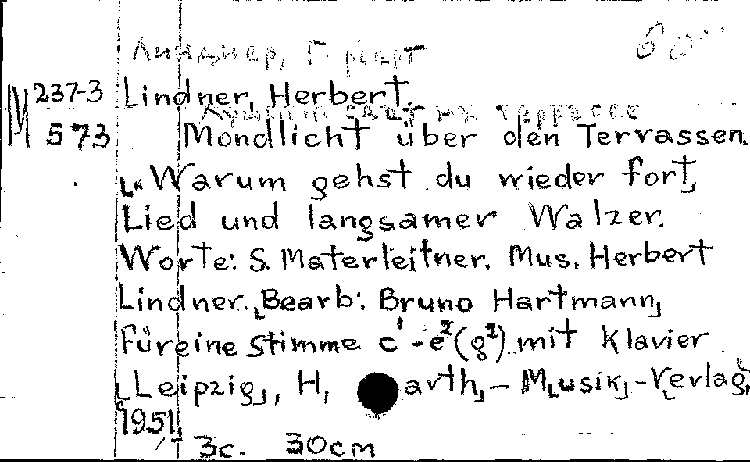 Линднер, Г рберт
M 237-3 Lindner, Herbert.
573 Mondlicht über den Terrassen.
"Warum gehst du wieder fort,
Lied und langsamer Walzer.
Worte: S. Materleitner. Mus. Herbert
Lindner. Bearb: Bruno Hartmann,
Für eine Stimme c¹-e²(g²) mit Klavier
[Leipzig], H, arth,- M[usik]-Verlag,
1951.
3c. 30cm